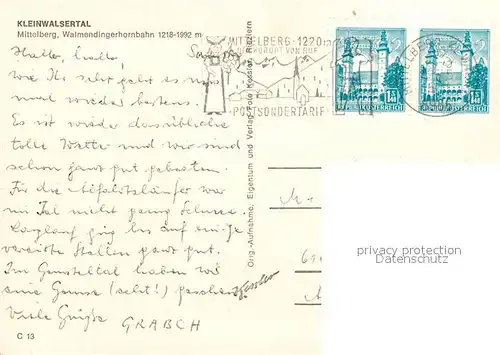 KLEINWALSERTAL
Mittelberg, Walmendingerhornbahn 1218-1992 m
Hallo, hallo,
wie Ihr seht geht es uns
mal wieder bestens.
Es ist wieder das übliche
tolle Wetter und wir sind
schon ganz gut gebraten.
Für die Abfahrtsläufer war
im Tal nicht genug Schnee.
Langlauf ging bis auf einige
vereiste Stellen ganz gut.
Im Gemsteltal haben wir
eine Gemse (echt!) gesehen
Viele Grüße GRABSCH
C 13
Orig.-Aufnahme, Eigentum und Verlag Foto Kessler, Riezlern
Kessler
MITTELBERG · 1220
POSTSONDERTARIF
REPUBLIK ÖSTERREICH
REPUBLIK ÖSTERREICH
MITTELBERG
privacy protection
Datenschutz